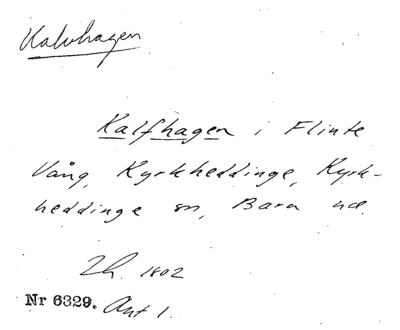 Kalvhagen
Kalfhagen i Flinte
Vång, Kyrkheddinge, Kyrk-
heddinge sn, Bara hd.
Lh. 1802
Nr 6329. Akt 1.